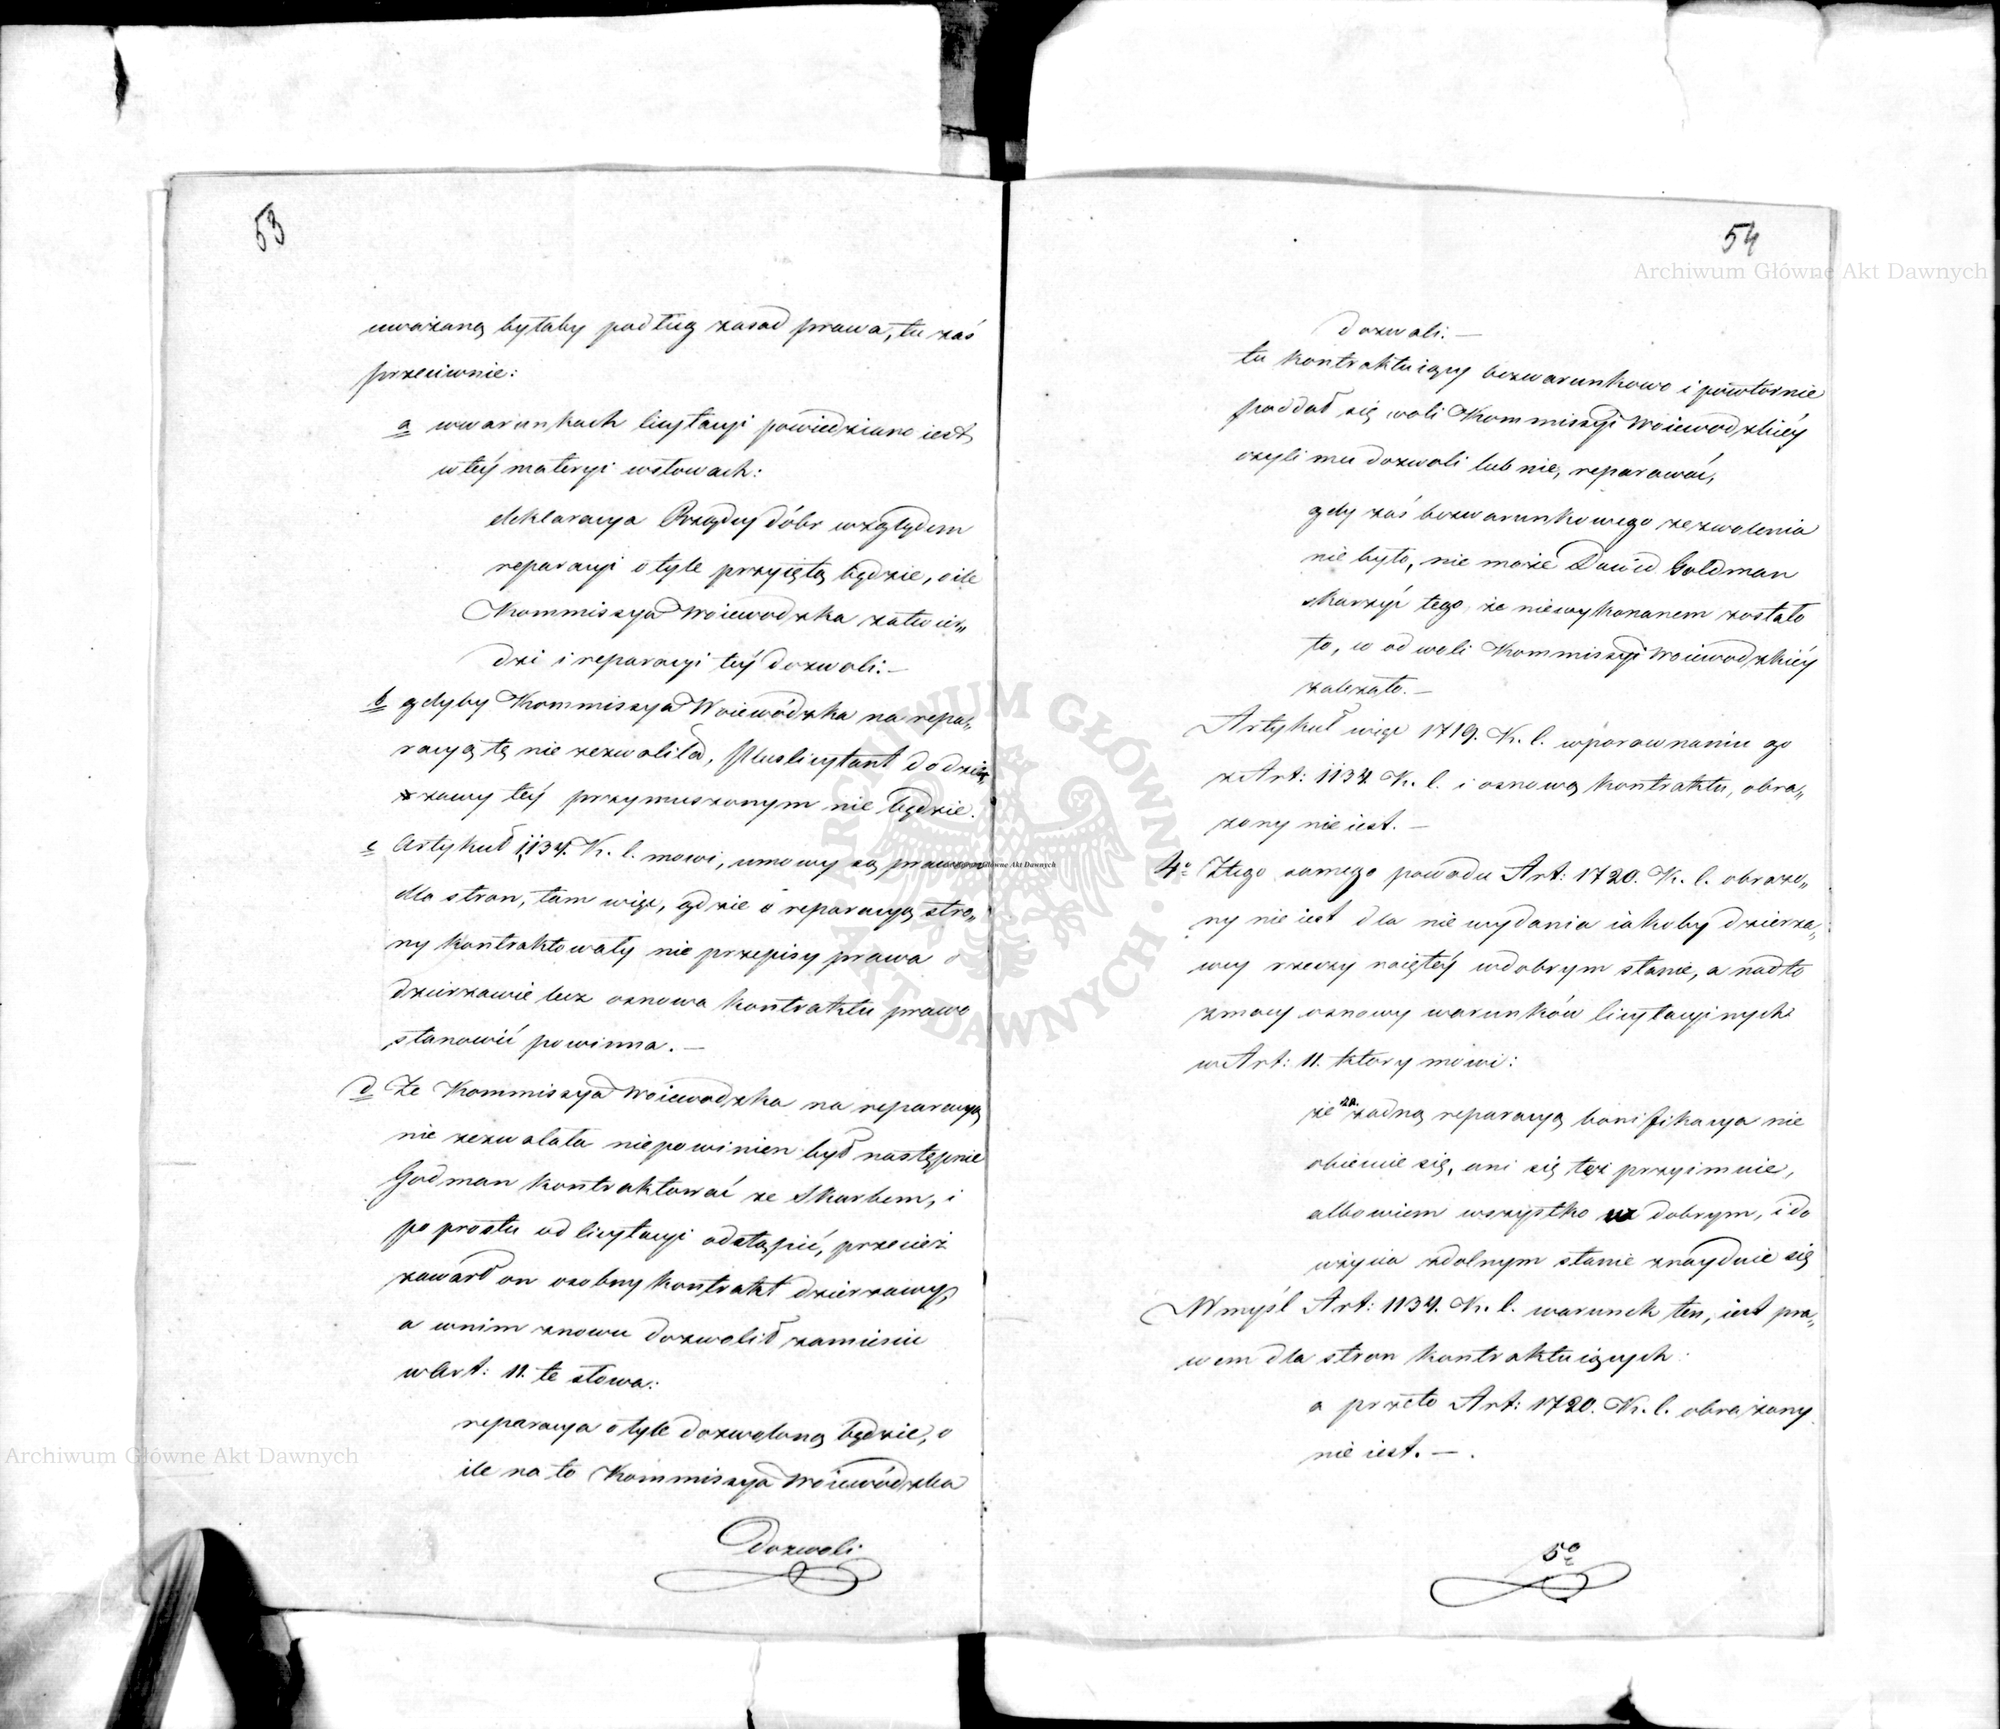 53
uważaną byłaby podług zasad prawa, tu zaś
przeciwnie:
a wwarunkach licytacyi powiedziano iest
wtéy materyi wsłowach:
deklaracya Rządcy dóbr względem
reparacyi otyle przyiętą będzie, oile
Kommissya Woiewodzka zatwier„
dzi i reparacyi téy dozwoli:—
b gdyby Kommissya Woiewódzka na repa„
racyą tę nie zezwoliła, Pluslicytant do dzier„
żawy téy przymuszonym nie będzie.
c Artykuł 1134. K. C. mowi, umowy są prawem
dla stron, tam więc, gdzie o reparacyą stro„
ny kontraktowały nie przepisy prawa o
dzierżawie lecz osnowa kontraktu prawo
stanowić powinna.—
d Że Kommissya Woiewodzka na reparacyą
nie zezwalała niepowinien był następnie
Godman kontraktować ze Skarbem, i
po prostu od licytacyi odstąpić, przecież
zawarł on osobny kontrakt dzierżawny,
a wnim znowu dozwolił zamieścić
wArt: 11. te słowa:
reparacya otyle dozwoloną będzie, o
ile na to Kommissya Woiewódzka
Dozwoli
54
dozwoli.—
tu kontraktuiący bezwarunkowo i powtornie
poddał się woli Kommissyi Woiewodzkiéy
czyli mu dozwoli lub nie, reparować,
gdy zaś bezwarunkowego zezwolenia
nie było, nie może Dawid Goldman
skarżyć tego, że niewykonanem zostało
to, co od woli Kommissyi Woiewodzkiéy
zależało.—
Artykuł więc 1719. K. C. wporownaniu go
zArt: 1134 K. C. i osnową kontraktu, obra„
żony nie iest.—
4º Ztego samego powodu Art: 1720. K. C. obrażo„
ny nie iest dla nie wydania iakoby dzierża„
wcy rzeczy naiętéy wdobrym stanie, a nadto
zmocy osnowy warunków licytacyinych
wArt: 11. ktory mówi:
że za żadną reparacyą bonifikacya nie
obiecuie się, ani się też przyimuie,
albowiem wszystko w dobrym, i do
użycia zdolnym stanie znayduie się
Wmyśl Art: 1134. K. C. warunek ten, iest pra„
wem dla stron kontraktuiących:
a przeto Art: 1720. K. C. obrażony
nie iest.—.
5º
Archiwum Główne Akt Dawnych
Archiwum Główne Akt Dawnych
Archiwum Główne Akt Dawnych
ARCHIWUM GŁÓWNE AKT DAWNYCH